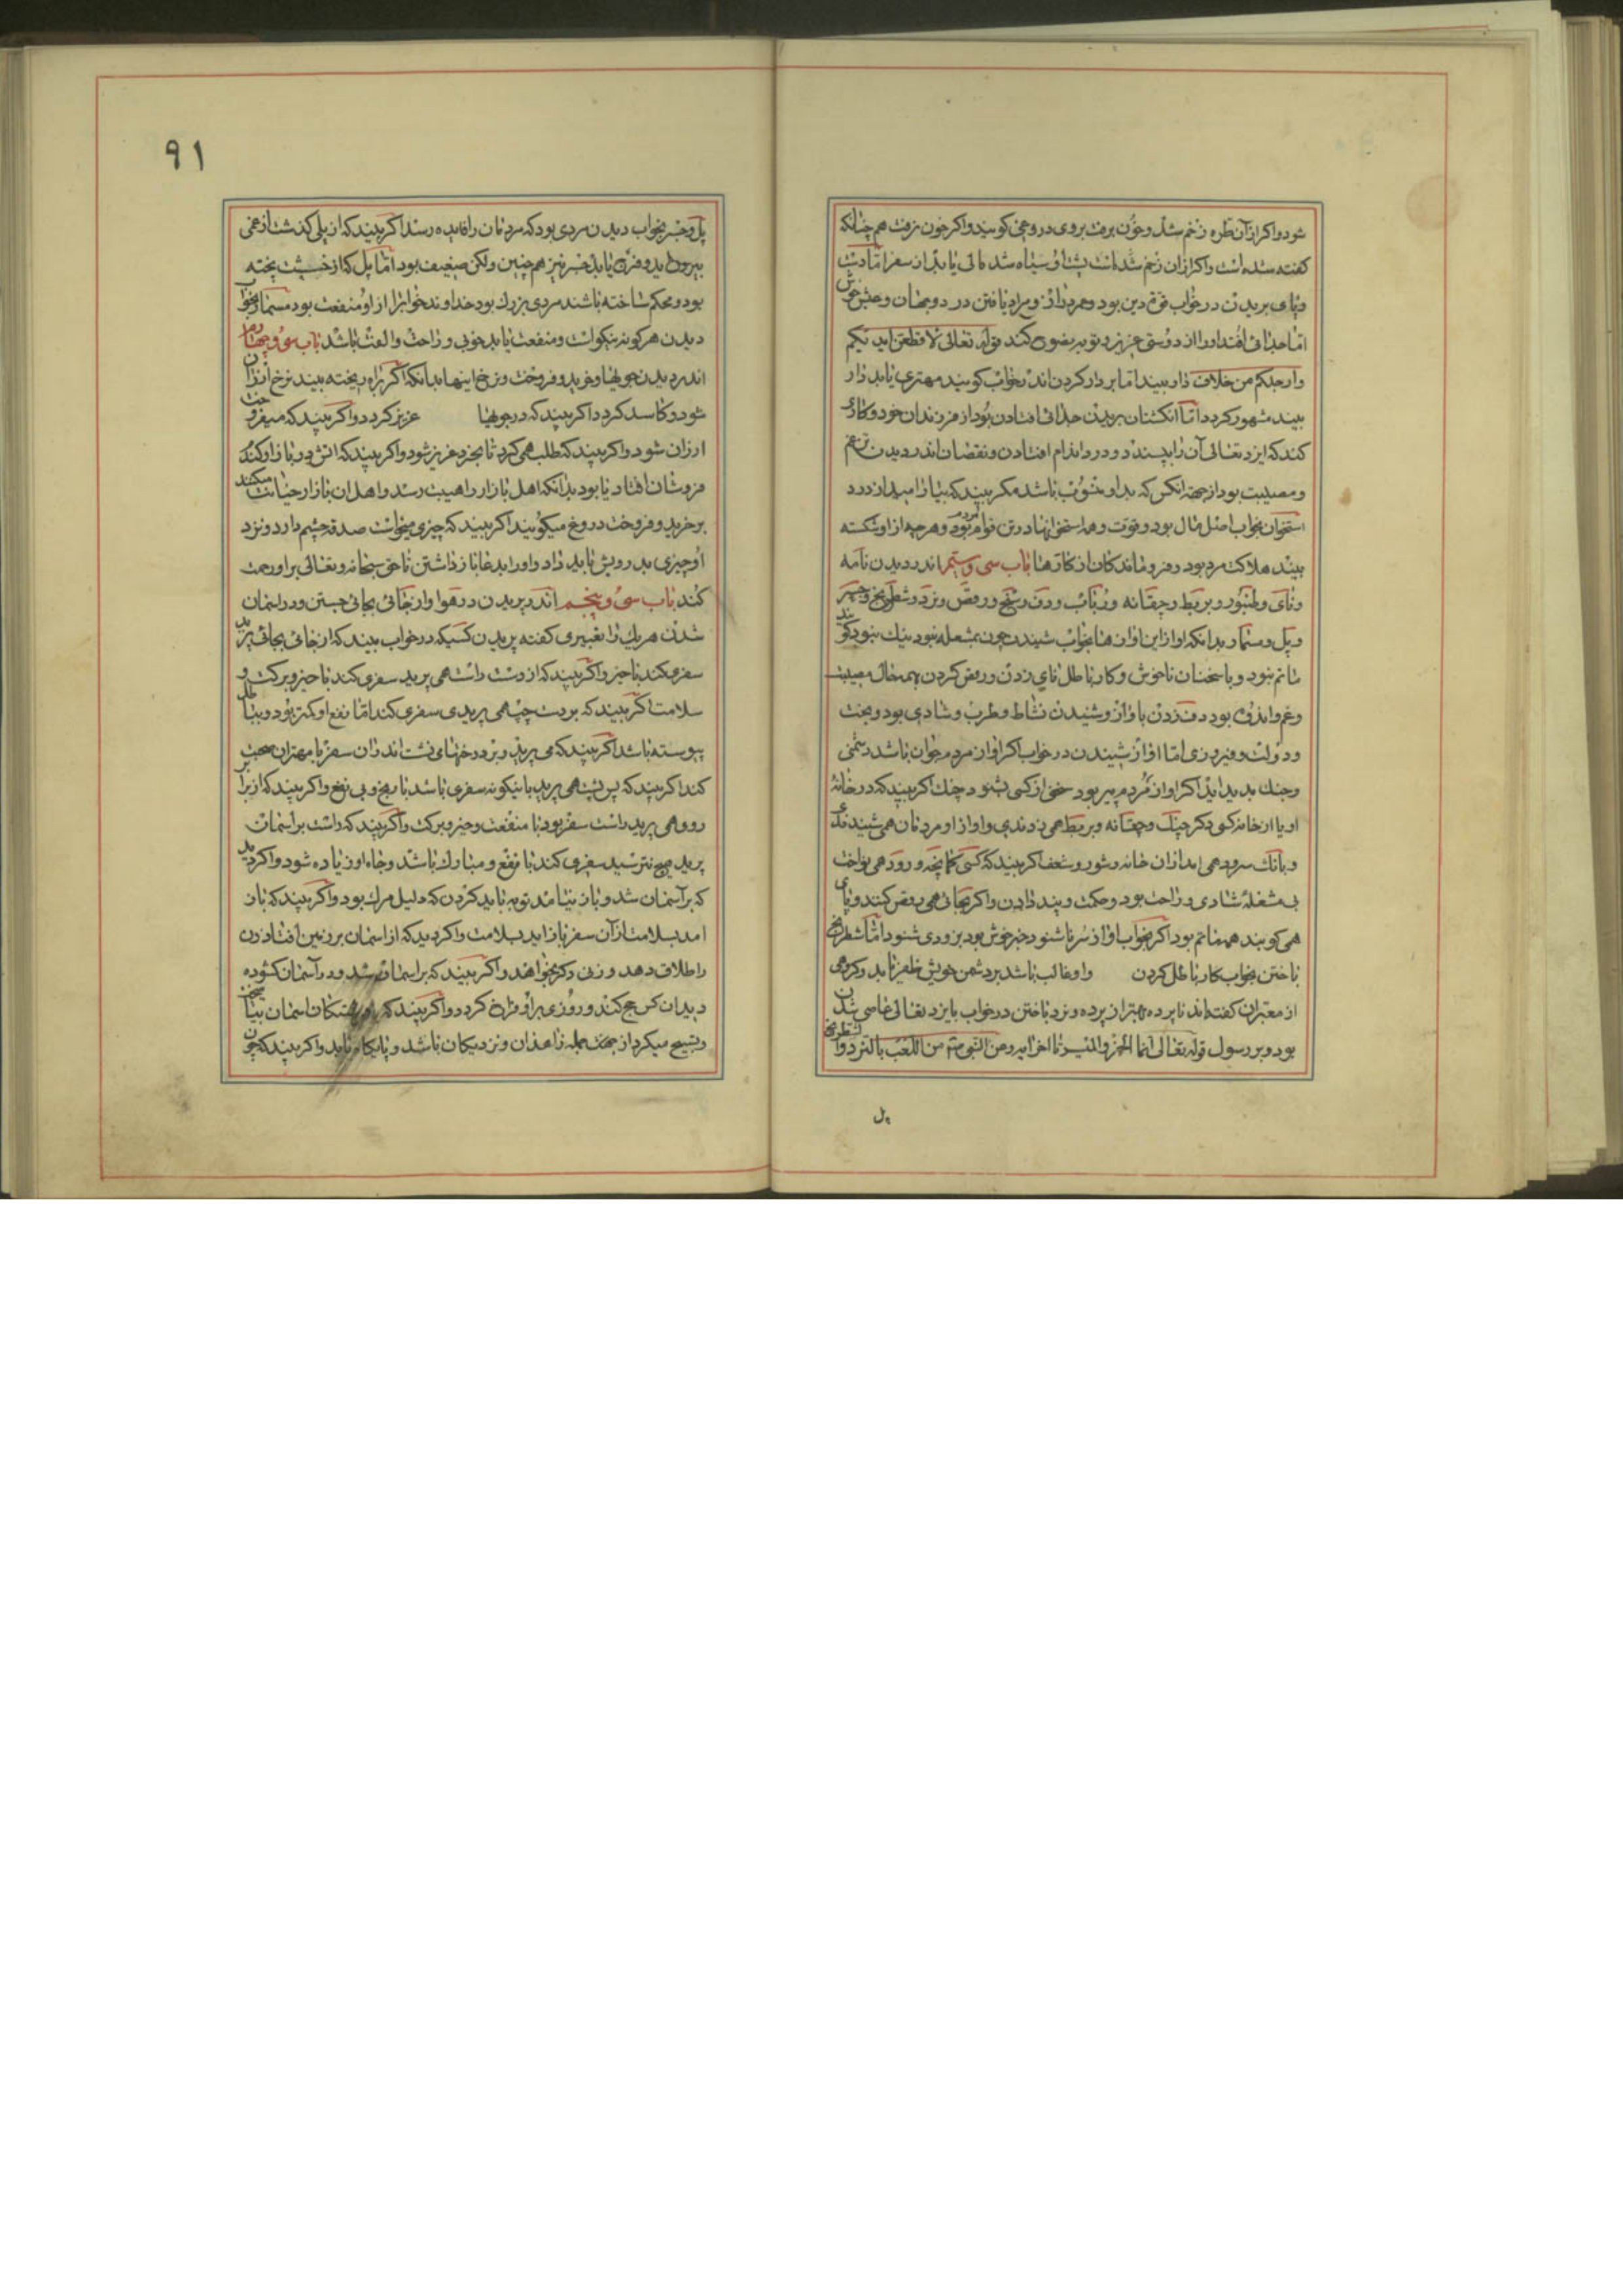 شود و اکر از آن طره زخم شد و خون برفت بروی دروغی کویند و اکر خون نرفت هم چنانکه
کفته شده است و اکر ازان زخم شده است پشت او سیاه شد مالی یابد از سفر امّا دست
و پای بریدن در خواب قوّة دین بود و عمر دراز و مراد یافتن در دو جهان و عیش خوش
امّا جدائی افتد او را از دوستی عزیز و توبه نصوح کند قوله تعالی لاقطعن ایدیکم
وارجلکم من خلاف دار بیند امّا بر دار کردن اندر خواب کویند مهتری یابد دار
بیند مشهور کردد امّا انکشتان بریدن جدائی افتادن بود از فرزندان خود و کاری
کند که ایزد تعالی آن را پسندد و درد اندام افتادن و نقصان اندر دیدن غم
و مصیبت بود از جهة انکس که بدو منسوب باشد مکر بیند که بیارامید از درد
استخوان بخواب اصل مال بود و قوت و همه استخوانها در تن قوام مردم بود و هرچه از او شکسته
بیند هلاکت مرد بود و فروماندکان از کارها باب سی و سیّم اندر دیدن نامه
و نای و طنبور و بربط و چغانه و رباب و دف و سنج و رقص و نرد و شطرنج و جسر
و پل و مسمار بدانکه اواز این اوازها بخواب شنیدن چون بمشعله نبود نیک نبود کویند
ماتم نبود و یا سخنان ناخوش و کار باطل نای زدن و رقص کردن بهمه حال مصیبت
و غم و اندوه بود دف زدن با واز و شنیدن نشاط و طرب و شادی بود و بخت
و دولت و فیروزی امّا اواز شنیدن در خواب اکر اواز مرد جوان باشد دشمنی
و جنک بدید اید اکر اواز مردم پیر بود سخن از کسی بشنود چنک اکر بیند که در خانه
او یا از خانه کسی دکر چنک و چغانه و بربط همی زدندی و اواز او مردمان همی شنیدند
و بانک سرود همی امد ازان خانه و شور و شغف اکر بیند که کسی کمانچه و رود همی نواخت
بی مشغله شادی و راحت بود و حکمت و پند دادن و اکر بجائی همی رقص کنند و پای
همی کوبند همه ماتم بود اکر بخواب اواز سرنا شنود خبر خوش بود بزودی شنود امّا شطرنج
باختن بخواب کار باطل کردن و او غالب باشد بر دشمن خویش ظفر یابد و کروهی
از معتبران کفته اند نابرده بهتر از برده و نرد باختن در خواب بایزد تعالی عاصی شدن
بود و بر رسول قوله تعالی انما الخمر والمیسر تا اخر ایه و عن النبی من اللعب بالنرد و الشطرنج
پل
۹۱
پل و جسر بخواب دیدن مردی بود که مردمان را فایده رسد اکر بیند که از پلی کذشت از غمی
بیرون اید و فرج یابد جسر نیز هم چنین ولکن ضعیف بود امّا پل که از خشت پخته
بود و محکم ساخته باشند مردی بزرک بود خداوند خواب را از او منفعت بود مسمار بخواب
دیدن هر کونه نیکو است و منفعت یابد خوبی و راحت و الفت باشد باب سی و چهارم
اندر دیدن جوبها و خرید و فروخت و نرخ اینها بدانکه اکر براه ریخته بیند نرخ ارزان
شود و کاسد کردد اکر بیند که در جوبها عزیز کردد و اکر بیند که میفروخت
ارزان شود و اکر بیند که طلب همی کرد تا بخرد عزیز شود و اکر بیند که اتش در بازار کندم
فروشان افتاد یا بود بدانکه اهل بازار را هیبت رسد و اهل ان بازار خیانت میکنند
بر خرید و فروخت دروغ میکویند اکر بیند که چیزی میخواست صدقه چشم دارد و نزد
او چیزی بدرویش باید داد و او را بدعا باز داشتن تا حق سبحانه و تعالی بر او رحمت
کند باب سی و پنجم اندر پریدن در هوا و از جائی بجائی جستن و در اسمان
شدن هر یک را تعبیری کفته پریدن کسیکه در خواب بیند که از جائی بجائی پرید
سفری کند با خیر و اکر بیند که از دست راست همی پرید سفری کند با خیر و برکت و
سلامت اکر بیند که بدست چپ همی پریدی سفری کند امّا نفع او کمتر بود و بباطل
پیوسته باشد اکر بیند که می پرید و بر درختهای نشست اندران سفر با مهتران صحبت
کند اکر بیند که پس پشت همی پرید باینکونه سفری باشد با رنج و بی نفع و اکر بیند که از برابر
رو و همی پرید راست سفر بود با منفعت و خیر و برکت و اکر بیند که راست بر اسمان
پرید هیچ نترسید سفری کند با نفع و مبارک باشد و جاه او زیاده شود و اکر دید
که بر آسمان شد و باز نیامد توبه باید کردن که دلیل مرک بود و اکر بیند که باز
امد بسلامت از آن سفر باز اید بسلامت و اکر دید که از اسمان بر زمین افتاد زن
را طلاق دهد و زن دکر بخواهد و اکر بیند که بر اسمان شد و در آسمان کشوده
دید ان کس حج کند و روزی بر او فراخ کردد و اکر بیند که با فرشتکان اسمان تسبیح
و تسبیح میکرد از جمله زاهدان و نزدیکان باشد و اکر بیند که چون